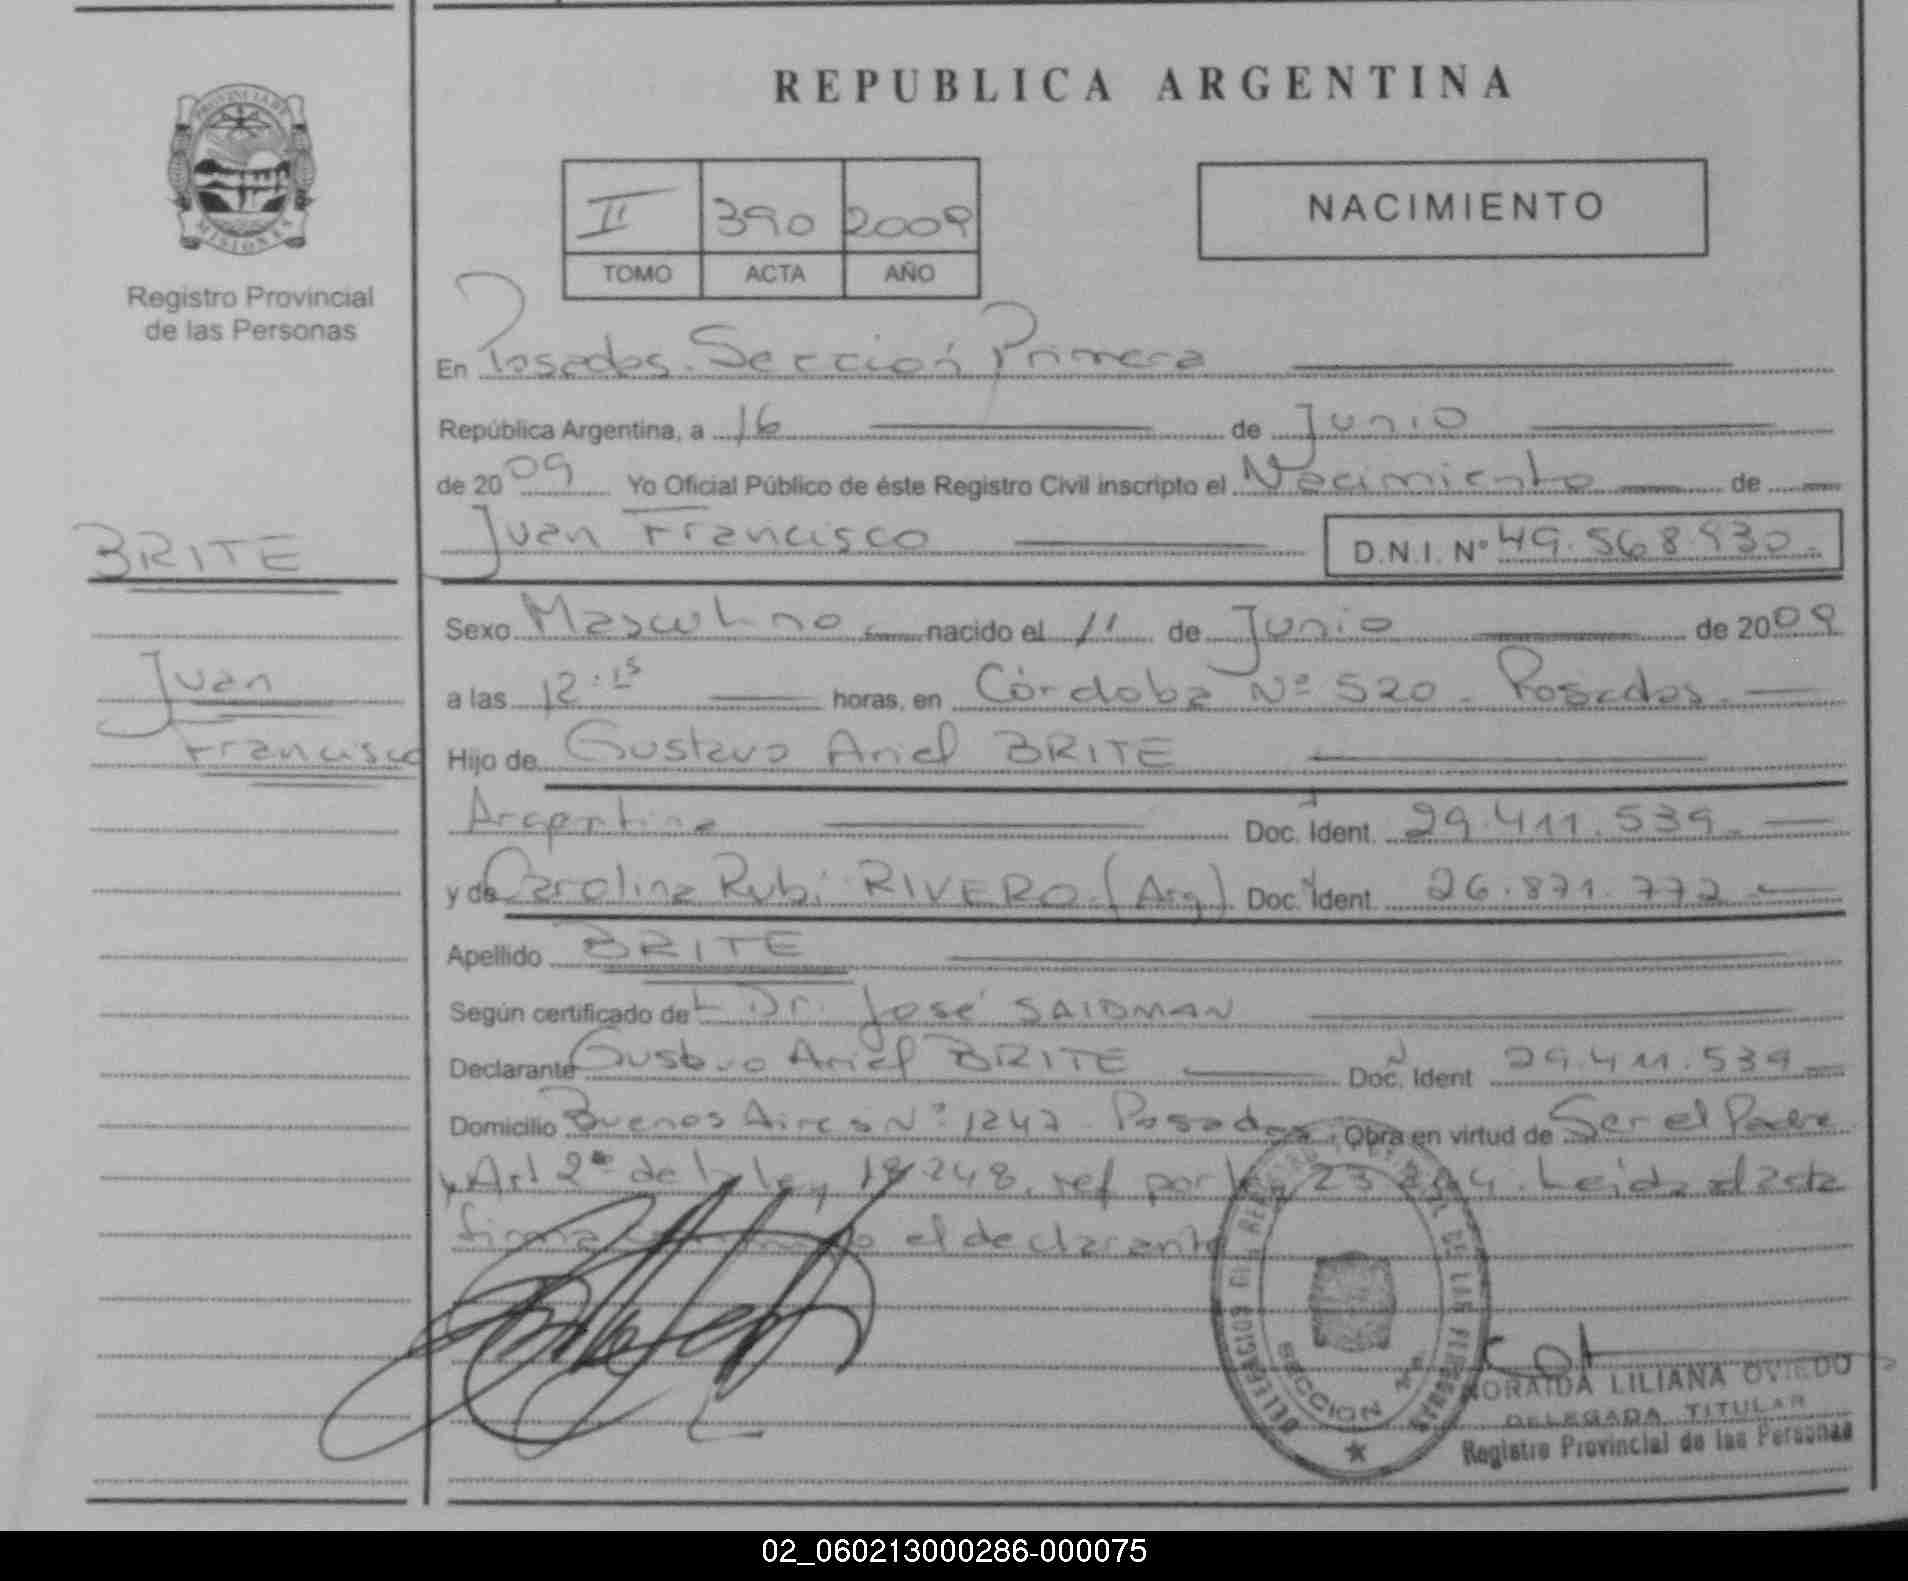 REPUBLICA ARGENTINA
PROVINCIA DE
MISIONES
Registro Provincial
de las Personas
II 390 2009
TOMO ACTA AÑO
NACIMIENTO
En Posadas. Sección Primera
República Argentina, a 16 de Junio
de 2009 Yo Oficial Público de éste Registro Civil inscripto el Nacimiento de
Juan Francisco D.N.I. Nº 49.568.930.
BRITE
Juan
Francisco
Sexo Masculino nacido el 11 de Junio de 2009
a las 12:15 horas, en Córdoba Nº 520 - Posadas.
Hijo de Gustavo Ariel BRITE
Argentina Doc. Ident. 29.411.539.
y de Carolina Rubi RIVERO (Arg). Doc. Ident. 26.871.772
Apellido BRITE
Según certificado del Dr. José SAIDMAN
Declarante Gustavo Ariel BRITE Doc. Ident 29.411.539
Domicilio Buenos Aires Nº 1247. Posadas. Obra en virtud de Ser el Padre
y Art 2º de la ley 18.248, ref por ley 23.264. Leida el acta
firma el declarante
DELEGACION DEL REGISTRO PROVINCIAL DE LAS PERSONAS
SECCION
NORAIDA LILIANA OVIEDO
DELEGADA TITULAR
Registro Provincial de las Personas
02_060213000286-000075